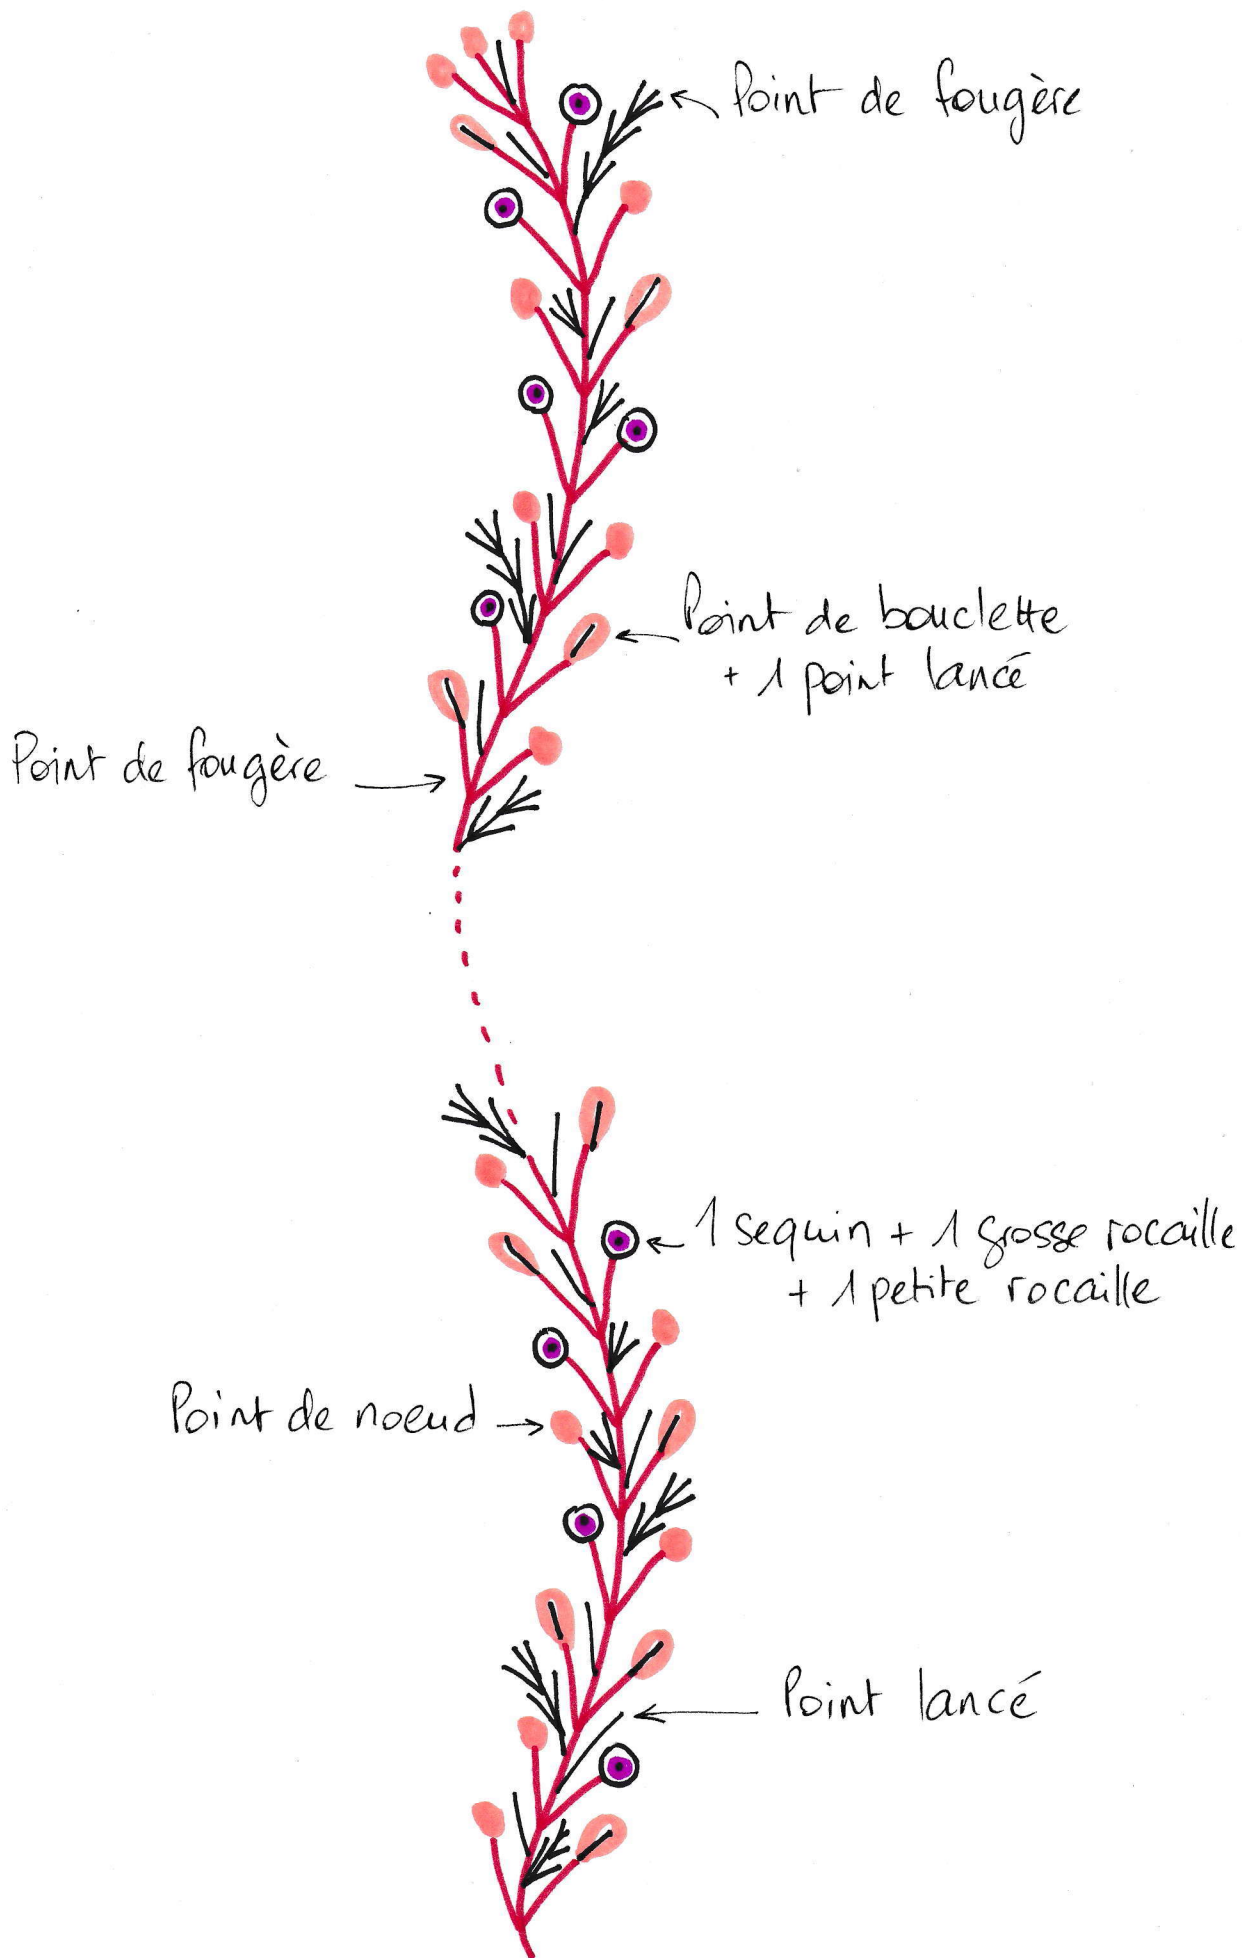 Point de fougère
Point de bouclette
+ 1 point lancé
Point de fougère
1 sequin + 1 grosse rocaille
+ 1 petite rocaille
Point de noeud
Point lancé